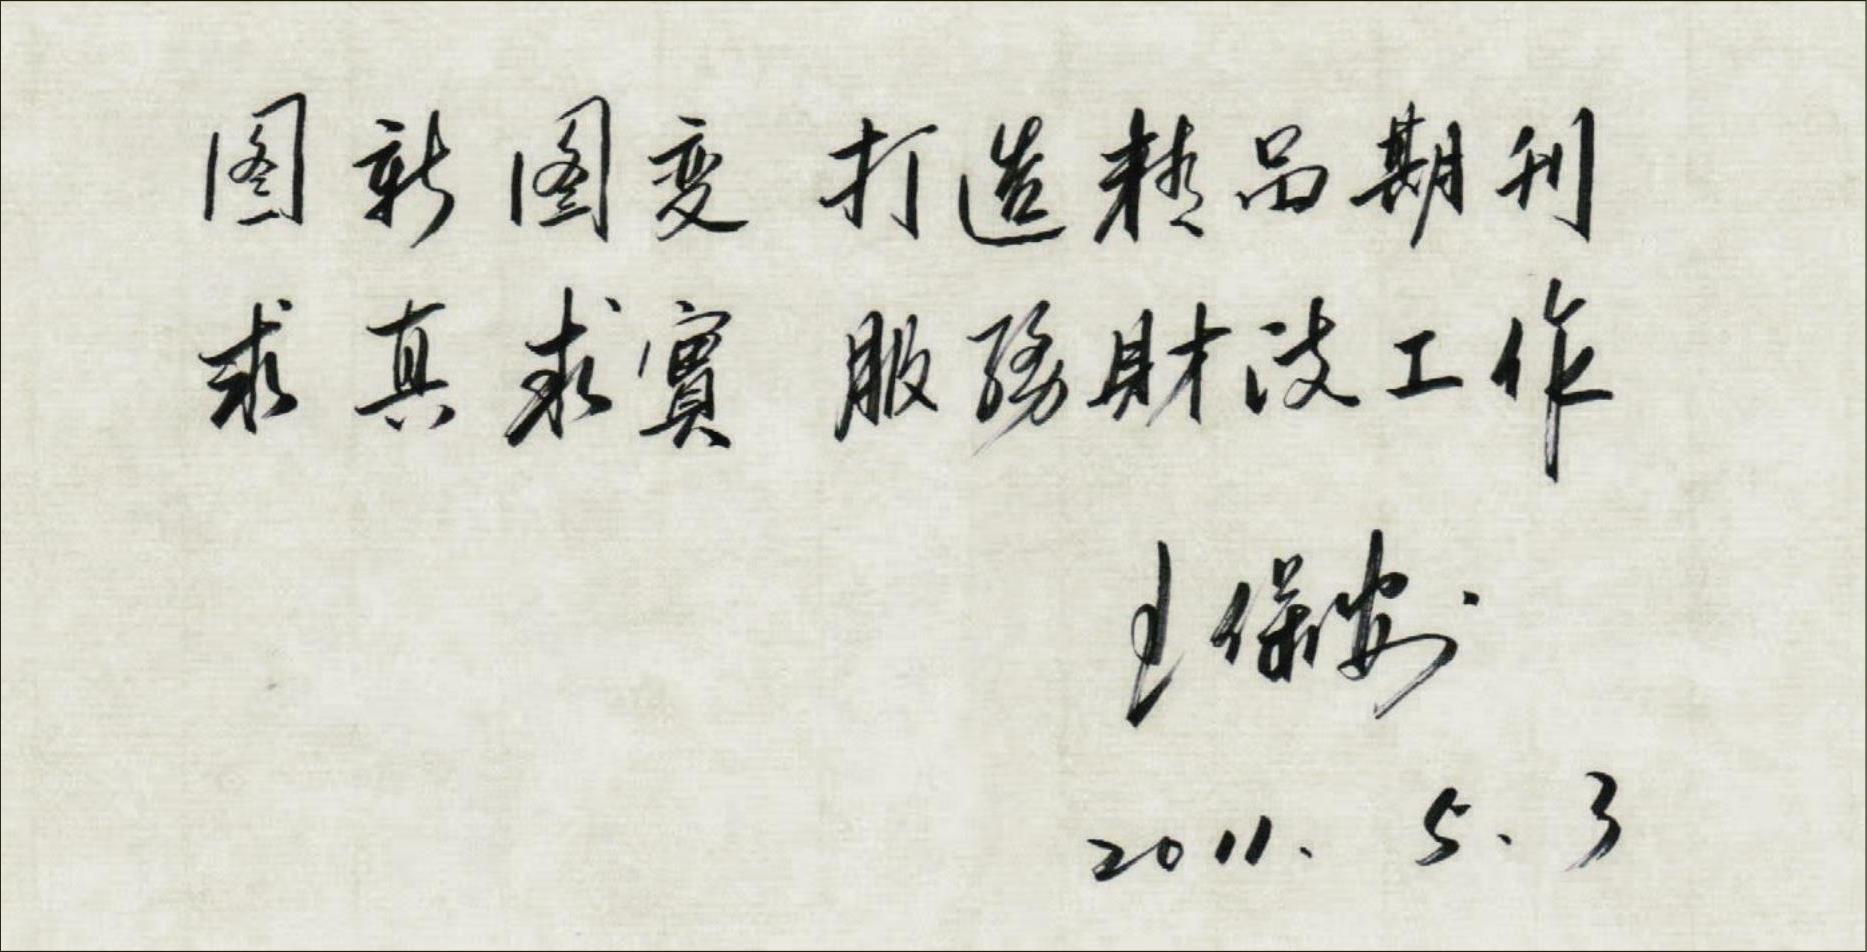 图新图变 打造精品期刊
求真求實 服務财政工作
王保安
2011.5.3